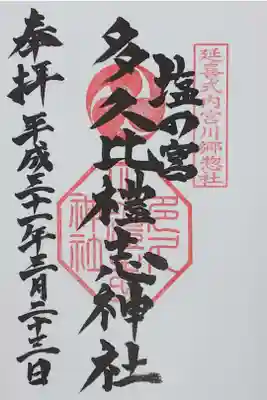 延喜式内宮川郷惣社
塩の宮
多久比禮志神社
奉拝 平成三十一年三月二十三日